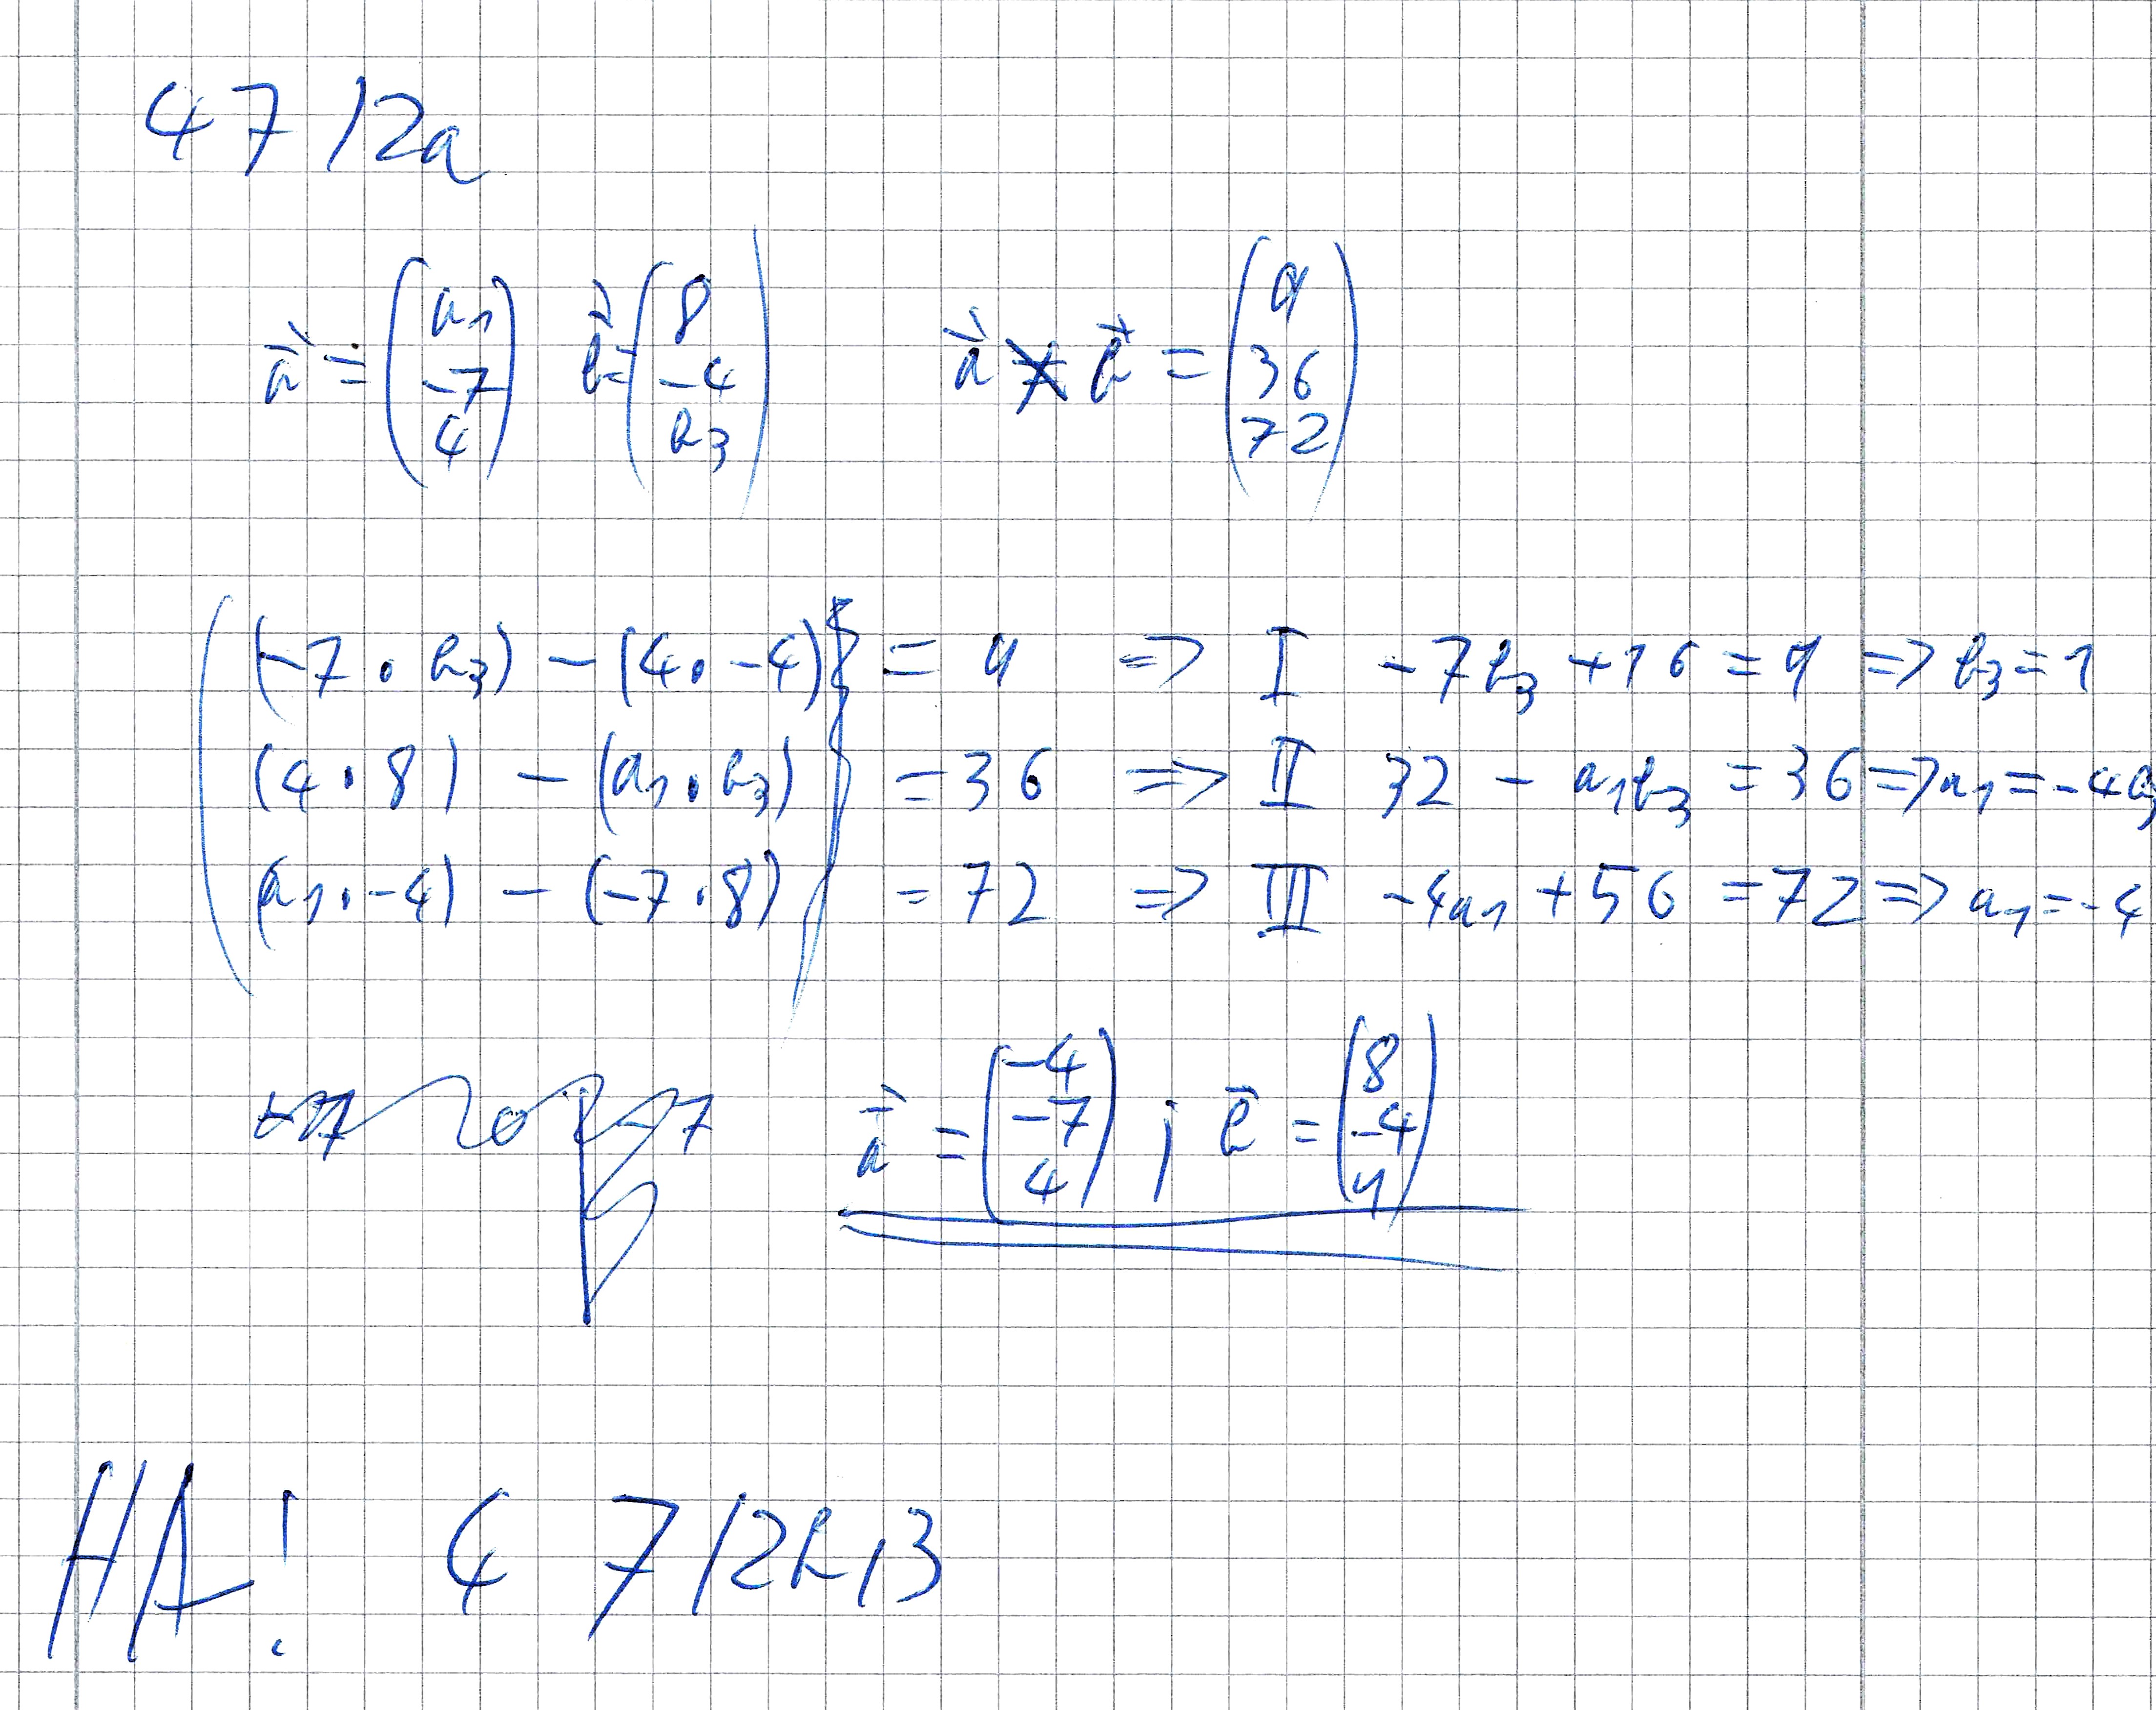 47/2a
a⃗ = (a₁ -7 4) b⃗ = (8 -4 b₃) a⃗ × b⃗ = (9 36 72)
(-7 · b₃) - (4 · -4) = 9 => I -7b₃ + 16 = 9 => b₃ = 1
(4 · 8) - (a₁ · b₃) = 36 => II 32 - a₁b₃ = 36 => a₁ = -4b₃
(a₁ · -4) - (-7 · 8) = 72 => III -4a₁ + 56 = 72 => a₁ = -4
a⃗ = (-4 -7 4) ; b⃗ = (8 -4 1)
HA! 47/2b,3